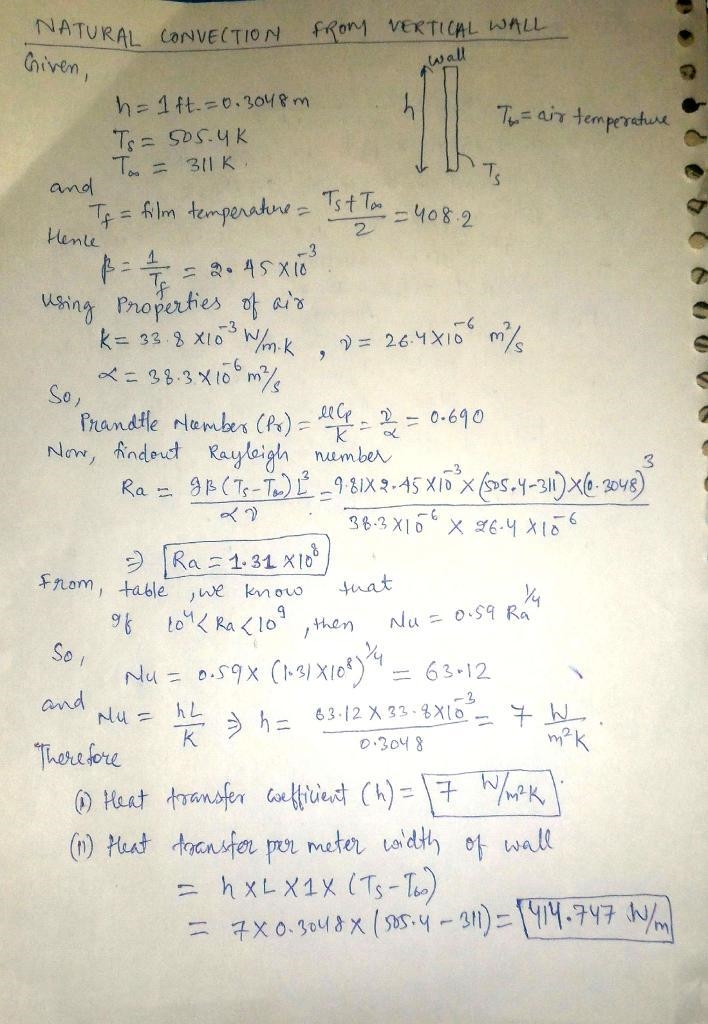 NATURAL CONVECTION FROM VERTICAL WALL
Given,
wall
h = 1 ft. = 0.3048 m
h
T∞ = air temperature
Ts = 505.4 K
T∞ = 311 K.
Ts
and
Tf = film temperature = (Ts + T∞)/2 = 408.2
Hence
β = 1/Tf = 2.45 × 10⁻³
Using Properties of air
K = 33.8 × 10⁻³ W/m.K , ν = 26.4 × 10⁻⁶ m²/s
α = 38.3 × 10⁻⁶ m²/s
So,
Prandtle Number (Pr) = μCp/K = ν/α = 0.690
Now, findout Rayleigh number
Ra = gβ(Ts - T∞)L³/αν = 9.81 × 2.45 × 10⁻³ × (505.4 - 311) × (0.3048)³ / 38.3 × 10⁻⁶ × 26.4 × 10⁻⁶
⇒ Ra = 1.31 × 10⁸
From, table, we know that
If 10⁴ < Ra < 10⁹, then Nu = 0.59 Ra^1/4
So,
Nu = 0.59 × (1.31 × 10⁸)^1/4 = 63.12
and Nu = hL/K ⇒ h = 63.12 × 33.8 × 10⁻³ / 0.3048 = 7 W/m²K.
Therefore
(i) Heat transfer coefficient (h) = 7 W/m²K.
(ii) Heat transfer per meter width of wall
= h × L × 1 × (Ts - T∞)
= 7 × 0.3048 × (505.4 - 311) = 414.747 W/m